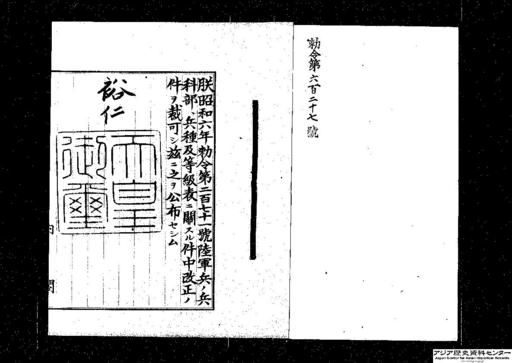 勅令第六百二十七號
朕昭和六年勅令第二百七十一號陸軍兵ノ兵
科部、兵種及等級表ニ關スル件中改正ノ
件ヲ裁可シ茲ニ之ヲ公布セシム
裕仁
天皇
御璽
内閣
アジア歴史資料センター
Japan Center for Asian Historical Records